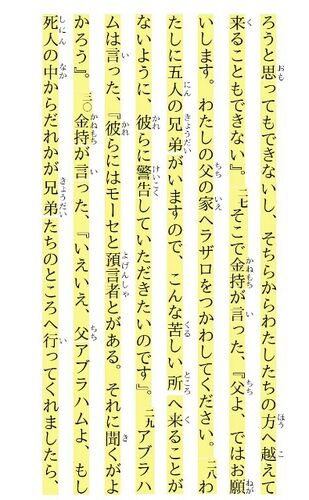 ろうと思ってもできないし、そちらからわたしたちの方へ越えて
来ることもできない』。二七そこで金持が言った、『父よ、ではお願
いします。わたしの父の家へラザロをつかわしてください。二八わ
たしに五人の兄弟がいますので、こんな苦しい所へ来ることが
ないように、彼らに警告していただきたいのです』。二九アブラハ
ムは言った、『彼らにはモーセと預言者とがある。それに聞くがよ
かろう』。三〇金持が言った、『いえいえ、父アブラハムよ、もし
死人の中からだれかが兄弟たちのところへ行ってくれましたら、